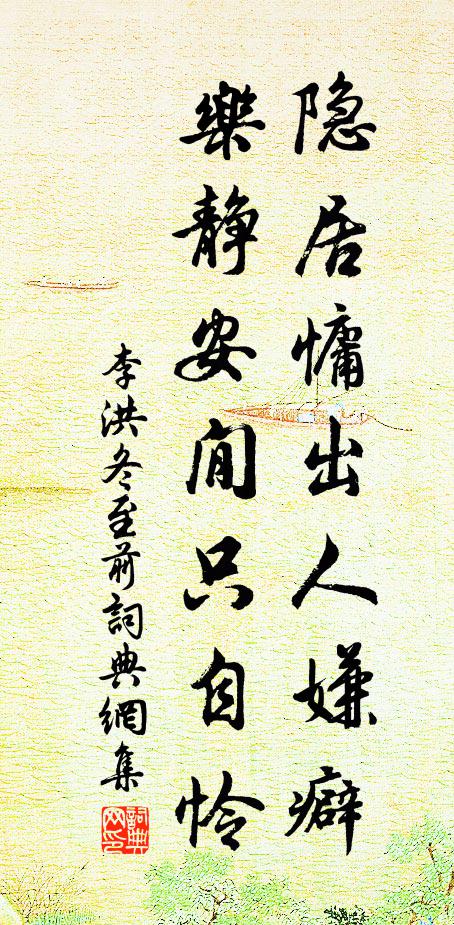 隐居慵出人嫌癖
樂静安闲只自怜
李洪冬至前詞典網集
詞典
网印